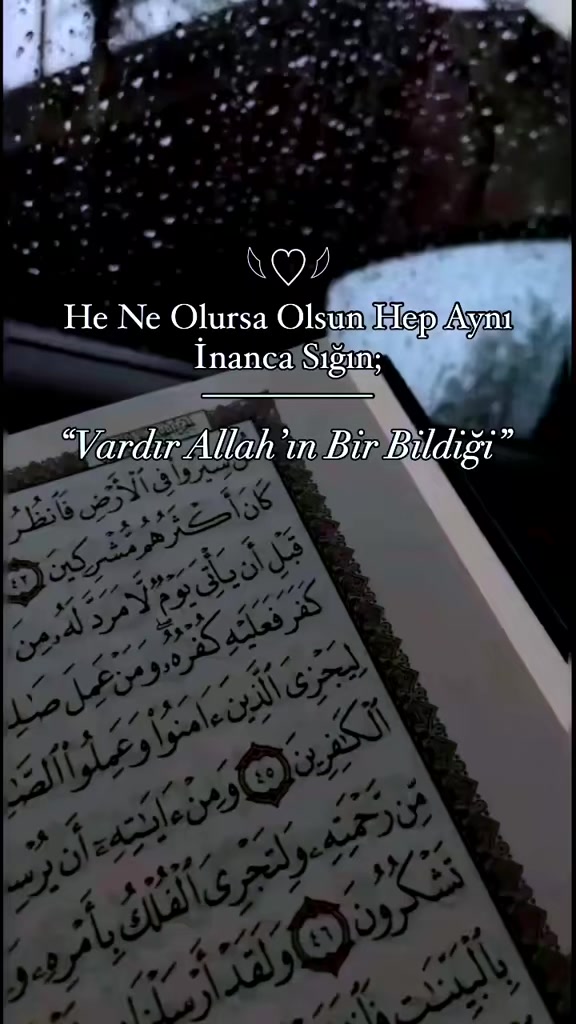 He Ne Olursa Olsun Hep Aynı
İnanca Sığın;
“Vardır Allah’ın Bir Bildiği”
سِيرُوا۟ فِى ٱلْأَرْضِ فَٱنظُرُ
كَانَ أَكْثَرُهُم مُّشْرِكِينَ ٤٢
قَبْلِ أَن يَأْتِىَ يَوْمٌ لَّا مَرَدَّ لَهُۥ مِنَ
كَفَرَ فَعَلَيْهِ كُفْرُهُۥ وَمَنْ عَمِلَ صَـٰلِ
لِيَجْزِىَ ٱلَّذِينَ ءَامَنُوا۟ وَعَمِلُوا۟ ٱلصَّـٰ
ٱلْكَـٰفِرِينَ ٤٥ وَمِنْ ءَايَـٰتِهِۦٓ أَن يُرْسِ
مِّن رَّحْمَتِهِۦ وَلِتَجْرِىَ ٱلْفُلْكُ بِأَمْرِهِۦ وَ
تَشْكُرُونَ ٤٦ وَلَقَدْ أَرْسَلْنَا
بِٱلْبَيِّنَـٰتِ